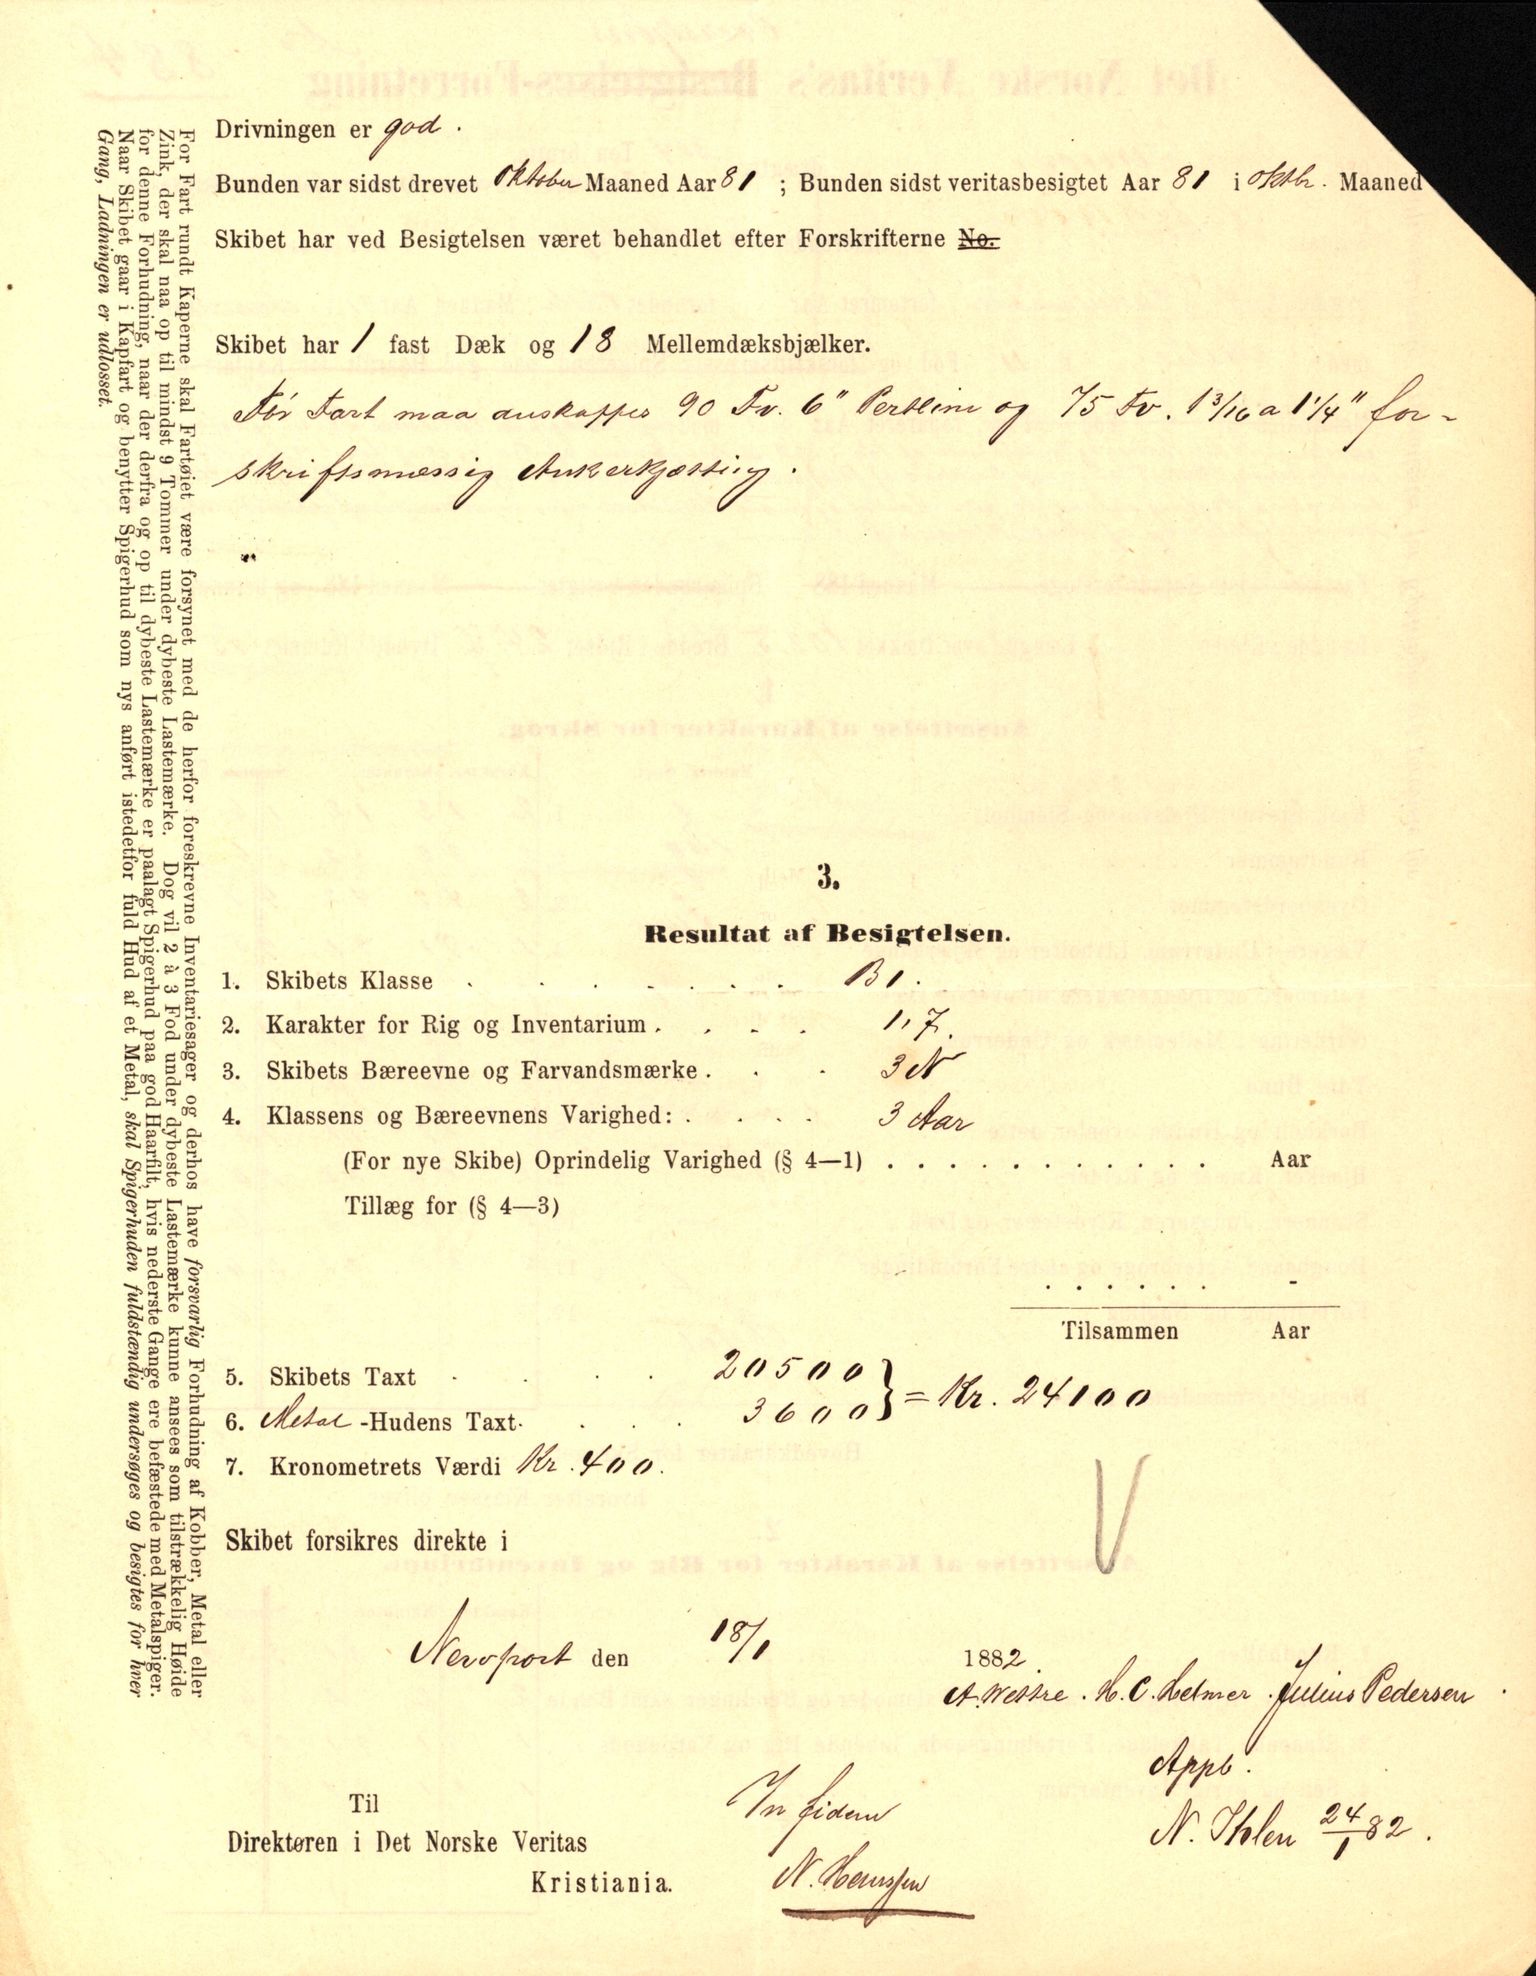 Drivningen er god.
Bunden var sidst drevet Oktober Maaned Aar 81 ; Bunden sidst veritasbesigtet Aar 81 i oktbr. Maaned
Skibet har ved Besigtelsen været behandlet efter Forskrifterne No.
Skibet har 1 fast Dæk og 18 Mellemdæksbjælker.
För Fart maa anskaffes 90 Fv. 6" Pertline og 75 Fv. 1 3/16 a 1 1/4" for-
skriftsmæssig Ankerkjætting.
3.
Resultat af Besigtelsen.
1. Skibets Klasse . . . . . . . B1.
2. Karakter for Rig og Inventarium . . . . 1,7.
3. Skibets Bæreevne og Farvandsmærke . . . 3 N
4. Klassens og Bæreevnens Varighed: . . . . 3 Aar
(For nye Skibe) Oprindelig Varighed (§ 4—1) . . . . . . . . . . . Aar
Tillæg for (§ 4—3)
. . . . . . -
Tilsammen Aar
5. Skibets Taxt . . . 20500
6. Metal -Hudens Taxt . . . 3600 } = Kr. 24100
7. Kronometrets Værdi Kr. 400.
Skibet forsikres direkte i
Newport den 18/1 1882.
A. Wettre. H. C. Helmer. Julius Pedersen.
Appb.
N. Ihlen 24/1 82.
In fidem
N. Henrssen
Til
Direktøren i Det Norske Veritas
Kristiania.
For Fart rundt Kaperne skal Fartøiet være forsynet med de herfor foreskrevne Inventariesager og derhos have forsvarlig Forhudning af Kobber, Metal eller
Zink, der skal naa op til mindst 9 Tommer under dybeste Lastemærke. Dog vil 2 à 3 Fod under dybeste Lastemærke kunne ansees som tilstrækkelig Høide
for denne Forhudning, naar der derfra og op til dybeste Lastemærke er paalagt Spigerhud paa god Haarfilt, hvis nederste Gange ere befæstede med Metalspiger.
Naar Skibet gaar i Kapfart og benytter Spigerhud som nys anført istedetfor fuld Hud af et Metal, skal Spigerhuden fuldstændig undersøges og besigtes for hver
Gang, Ladningen er udlosset.